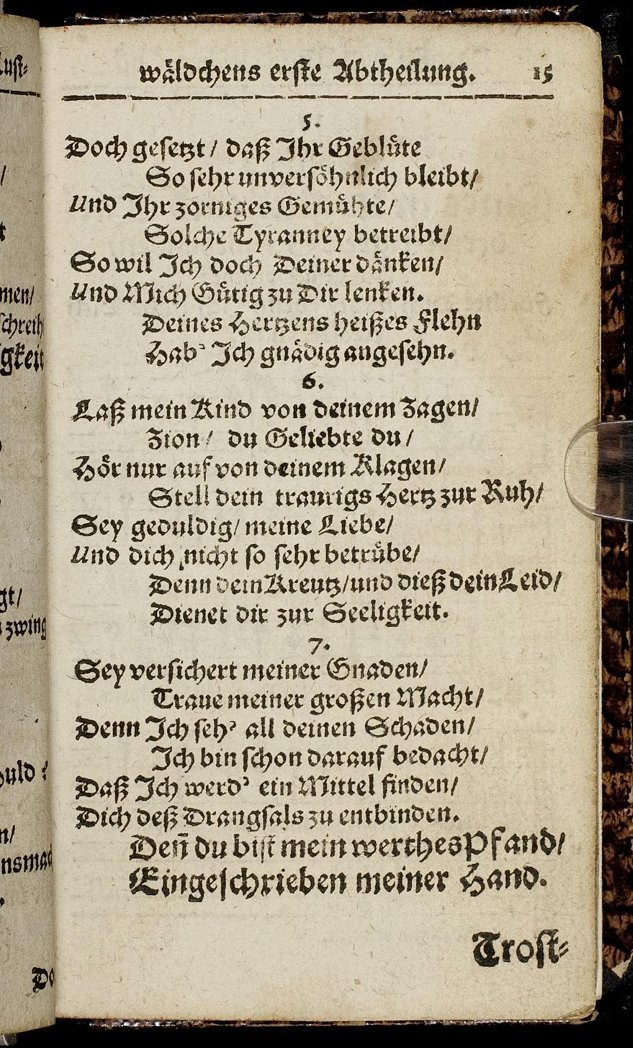 wäldchens erste Abtheilung. 15
5.
Doch gesetzt / daß Ihr Geblüte
So sehr unversöhnlich bleibt/
Und Ihr zorniges Gemühte/
Solche Tyranney betreibt/
So wil Ich doch Deiner dänken/
Und Mich Gütig zu Dir lenken.
Deines Hertzens heißes Flehn
Hab' Ich gnädig angesehn.
6.
Laß mein Kind von deinem Zagen/
Zion / du Geliebte du /
Hör nur auf von deinem Klagen/
Stell dein traurigs Hertz zur Ruh/
Sey geduldig/ meine Liebe/
Und dich nicht so sehr betrübe/
Denn dein Kreutz/und dieß dein Leid/
Dienet dir zur Seeligkeit.
7.
Sey versichert meiner Gnaden/
Traue meiner großen Macht/
Denn Ich seh' all deinen Schaden/
Ich bin schon darauf bedacht/
Daß Ich werd' ein Mittel finden/
Dich deß Drangsals zu entbinden.
Deñ du bist mein werthes Pfand/
Eingeschrieben meiner Hand.
Trost-